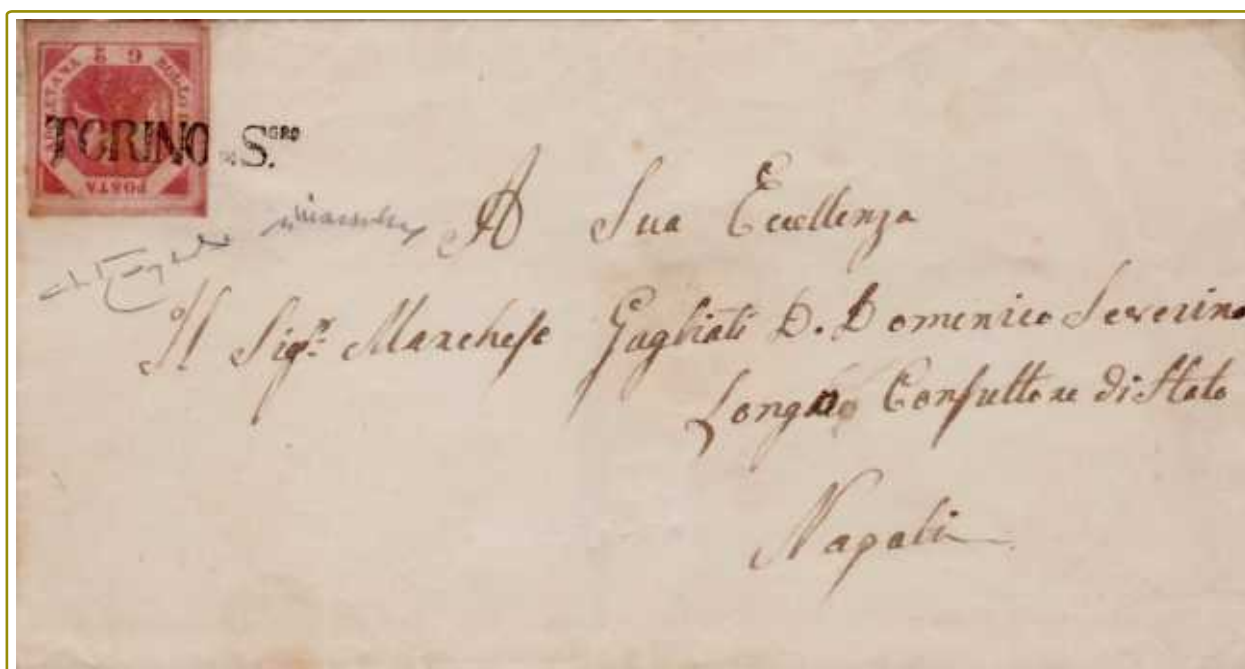 BOLLO POSTA NAPOLETANA G 2
TORINO DI S.GRO
A Sua Eccellenza
Il Sigr. Marchese Gagliati D. Domenico Severino
Longo Consultore di Stato
Napoli